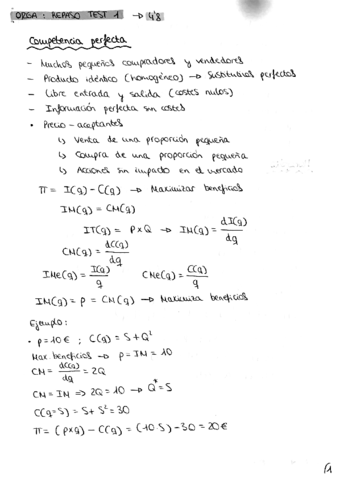 ORGA: REPASO TEST 1 → 4'8
Competencia perfecta
- Muchos pequeños compradores y vendedores
- Producto idéntico (homogéneo) → Sustitutivos perfectos
- Libre entrada y salida (costes nulos)
- Información perfecta sin costes
• Precio-aceptantes
↳ Venta de una proporción pequeña
↳ Compra de una proporción pequeña
↳ Acciones sin impacto en el mercado
π = I(q) - C(q) → Maximizar beneficios
IM(q) = CM(q)
IT(q) = P×Q → IM(q) = dI(q)/dq
CM(q) = dC(q)/dq
IMe(q) = I(q)/q CMe(q) = C(q)/q
IM(q) = p = CM(q) → Maximiza beneficios
Ejemplo:
• p=10€ ; C(q) = 5+Q²
Max. beneficios → p = IM = 10
CM = dC(q)/dq = 2Q
CM = IM => 2Q = 10 → Q* = 5
C(q=5) = 5 + 5² = 30
π = (p×q) - C(q) = (10·5) - 30 = 20€